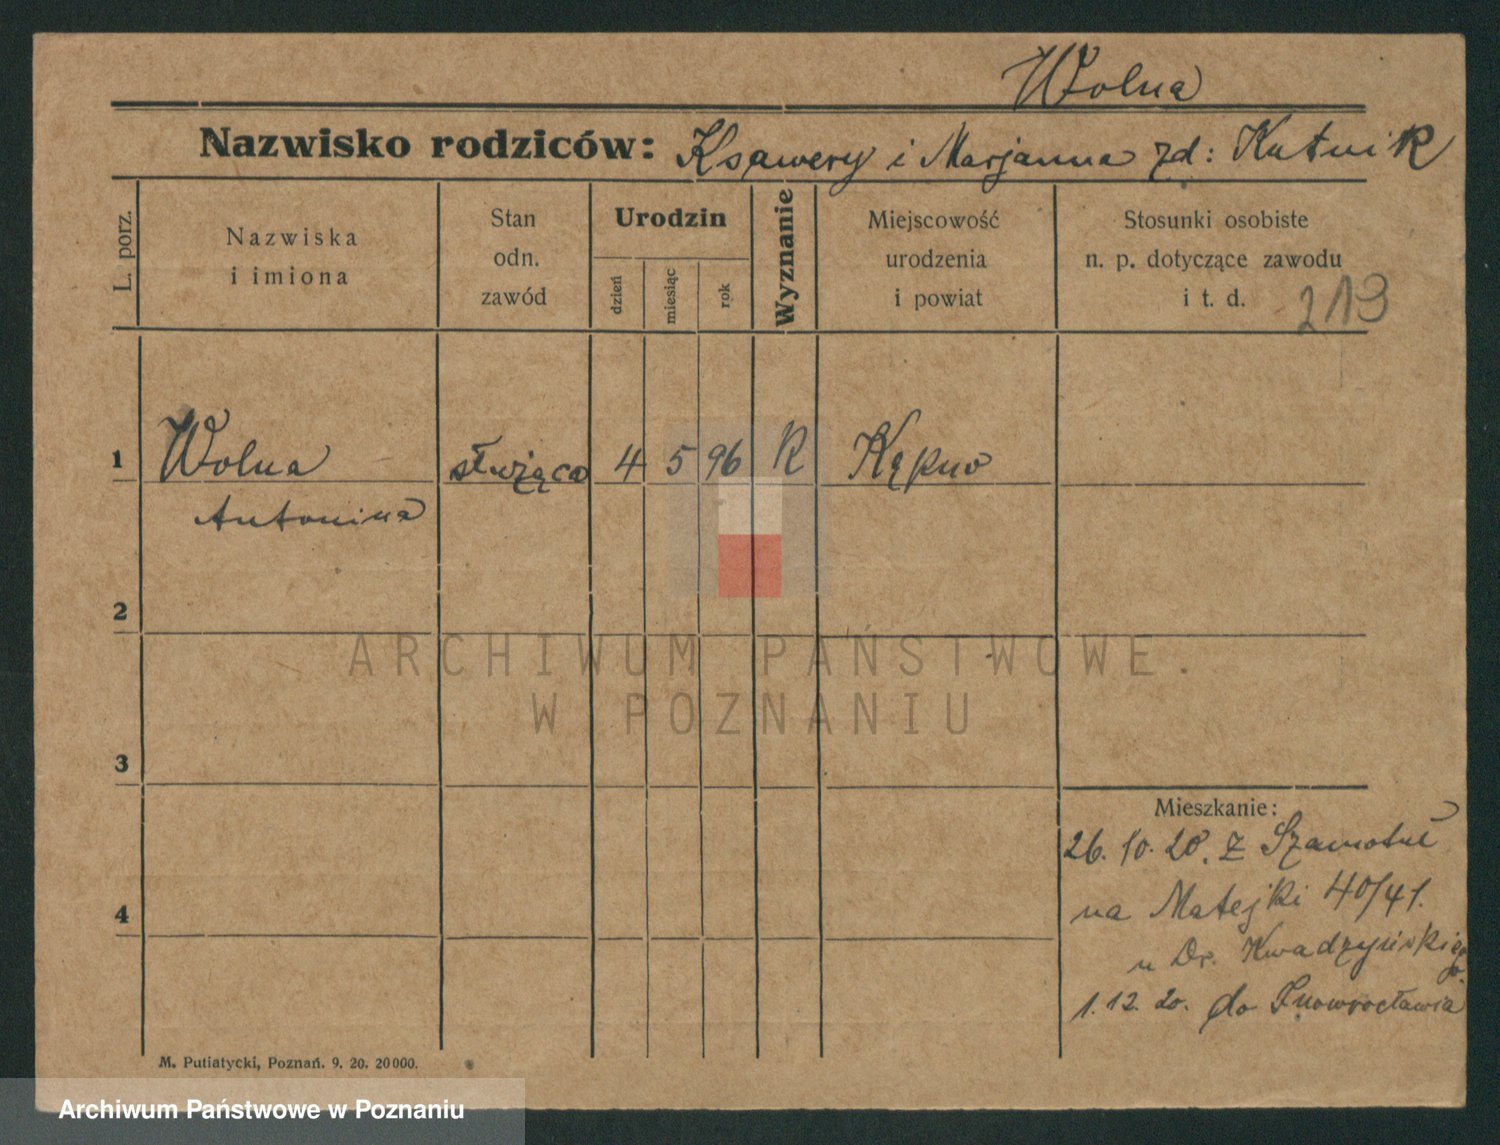 Wolna
Nazwisko rodziców: Ksawery i Marjanna zd: Kutnik
L. porz.
Nazwiska
i imiona
Stan
odn.
zawód
Urodzin
dzień
miesiąc
rok
Wyznanie
Miejscowość
urodzenia
i powiat
Stosunki osobiste
n. p. dotyczące zawodu
i t. d.
213
1 Wolna służąca 4 5 96 R Kępno
Antonina
2
3
4
Mieszkanie:
26. 10. 20. z Szamotuł
na Matejki 40/41.
u Dr. Kwadzyńskiego.
1. 12. 20. do Inowrocławia
M. Putiatycki, Poznań. 9. 20. 20000.
ARCHIWUM PAŃSTWOWE.
W POZNANIU
Archiwum Państwowe w Poznaniu